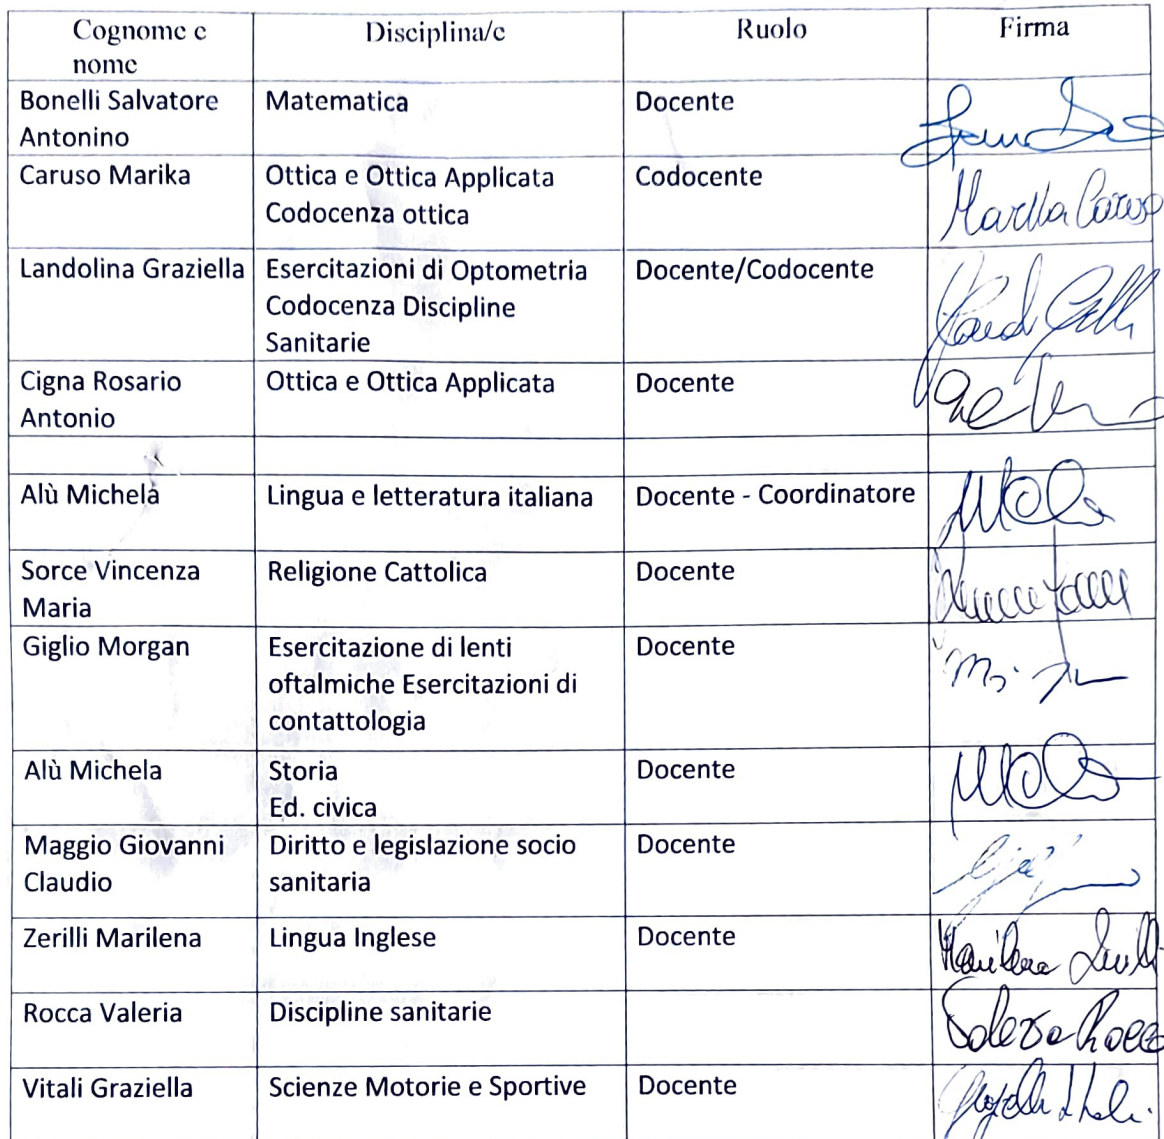 Cognome e
nome
Disciplina/e
Ruolo
Firma
Bonelli Salvatore
Antonino
Matematica
Docente
Caruso Marika
Ottica e Ottica Applicata
Codocenza ottica
Codocente
Marika Caruso
Landolina Graziella
Esercitazioni di Optometria
Codocenza Discipline
Sanitarie
Docente/Codocente
Cigna Rosario
Antonio
Ottica e Ottica Applicata
Docente
Alù Michela
Lingua e letteratura italiana
Docente - Coordinatore
Sorce Vincenza
Maria
Religione Cattolica
Docente
Giglio Morgan
Esercitazione di lenti
oftalmiche Esercitazioni di
contattologia
Docente
Alù Michela
Storia
Ed. civica
Docente
Maggio Giovanni
Claudio
Diritto e legislazione socio
sanitaria
Docente
Zerilli Marilena
Lingua Inglese
Docente
Marilena Zerilli
Rocca Valeria
Discipline sanitarie
Valeria Rocca
Vitali Graziella
Scienze Motorie e Sportive
Docente